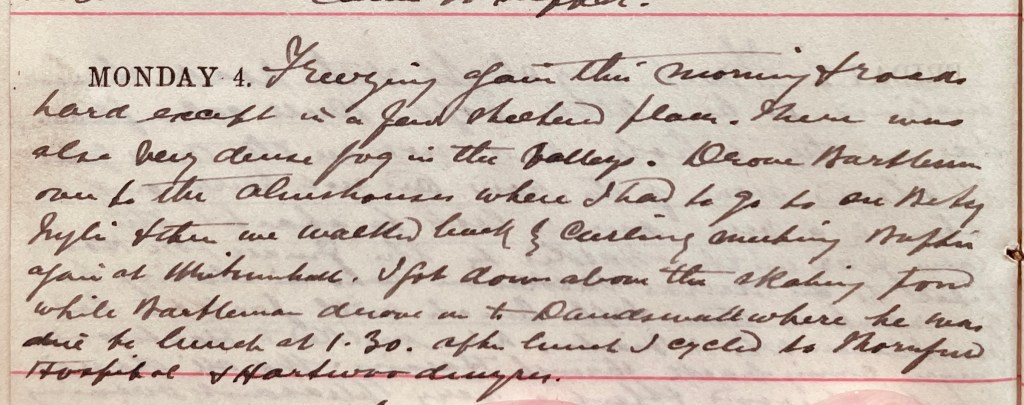 MONDAY 4. Freezing again this morning & roads
hard except in a few sheltered places. There was
also very dense fog in the valleys. Drove Bartleman
over to the almshouses where I had to go to see Betsy
& then we walked back by Curling meeting
again at. I got down above the skating pond
while Bartleman drove on to where he was
due to lunch at 1.30. after lunch I cycled to
Hospital & Hartwood